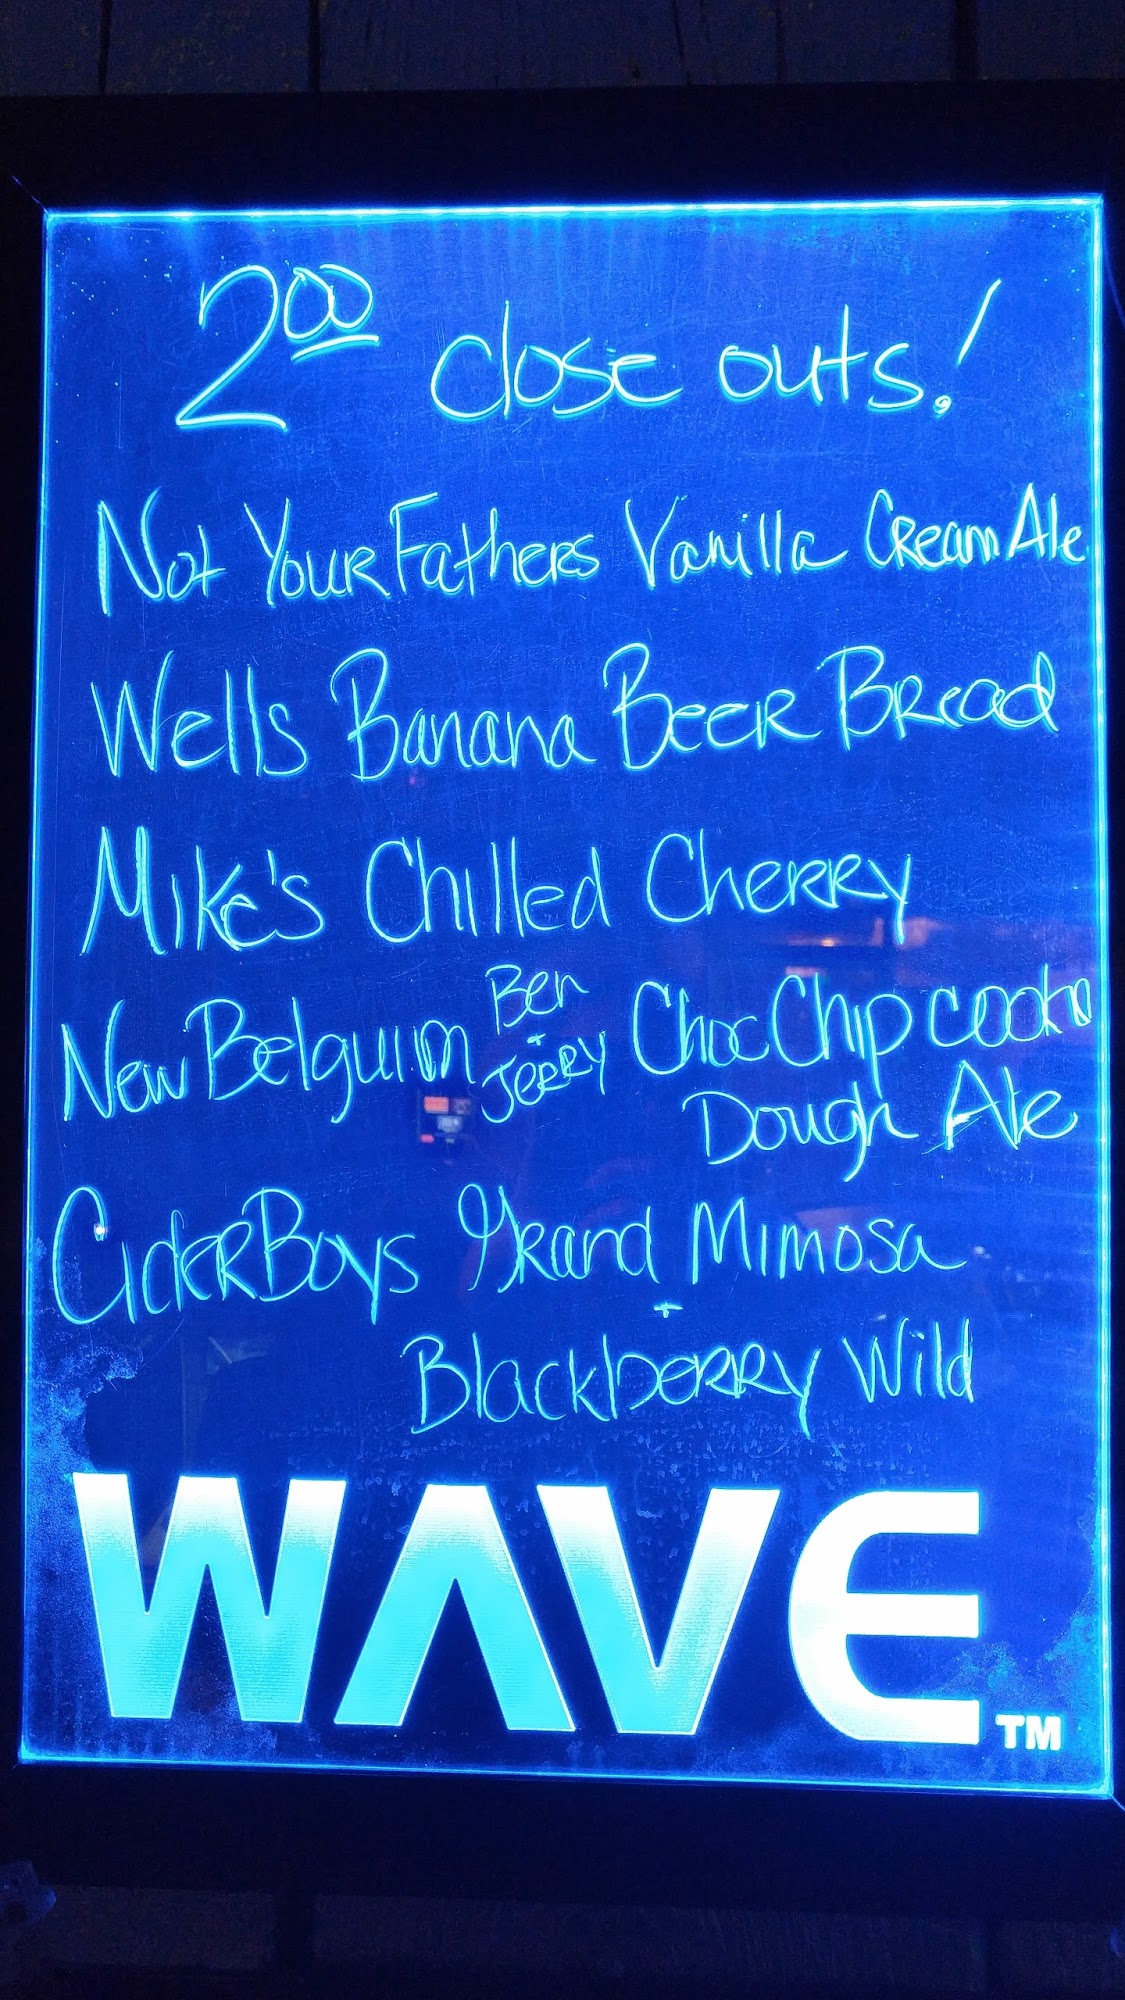 2.00 close outs!
Not Your Fathers Vanilla Cream Ale
Wells Banana Beer Bread
Mike's Chilled Cherry
New Belguim Ben + Jerry Choc Chip cookie
Dough Ale
CiderBoys Grand Mimosa
+
Blackberry Wild
WAVE™